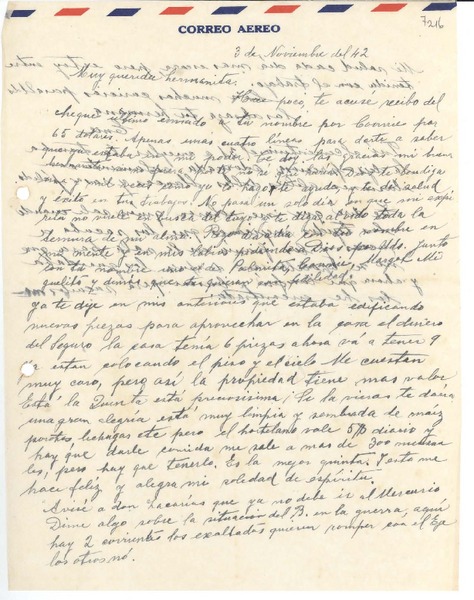 CORREO AEREO
7216
3 de Noviembre del 42
Muy querida hermanita:
Hace poco, te acusé recibo del
cheque enviado a tu nombre por Connie por
65 dolares. Apenas unas cuatro lineas para darte a saber
que ya estaba en mi poder. Te doy las gracias mi buen
te bendiga
yo te ayude, y te dé salud
y éxito en tus trabajos. No pasa un solo dia en que mi espí
ritu no vaya en busca del tuyo y te diga al oido toda la
ternura de mi alma. Pero dia a dia está tu nombre en
mi mente y en mis labios pidiendo a Dios por Uds. Junto
con tu nombre van los de Palmita, Connie, Margot Mi
guelito y demás que te quieren
Ya te dije en mis anteriores que estaba edificando
nuevas piezas para aprovechar en la casa el dinero
del Seguro la casa tenía 6 piezas ahora va a tener 9
Ya estan colocando el piso y el cielo Me cuestan
muy caro, pero así la propiedad tiene mas valor
Está la Quinta está preciosísima; Si la vieras te daría
una gran alegría está muy limpia y sembrada de maiz
porotos lechugas etc pero el hortelano vale 5 diario y
hay que darle comida me sale a mas de 300 mensua
les, pero hay que tenerlo. Es la mejor quinta. Y esta me
hace feliz y alegra mi soledad de espiritu.
Avisé a don Zacarías que ya no debe ir al Mercurio
Dime algo sobre la situación del B. en la guerra, aquí
hay 2 corrientes los exaltados quieren romper con el Eje
los otros nó.